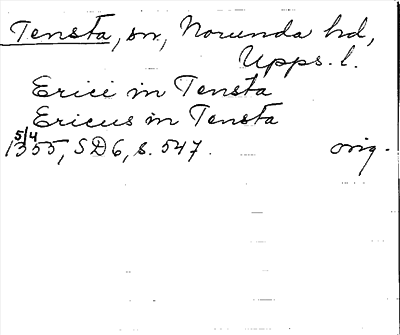 Tensta, sn, Norunda hd,
Upps. l.
Erici in Tensta
Ericus in Tensta
5/4
1355, SD 6, s. 547. orig.